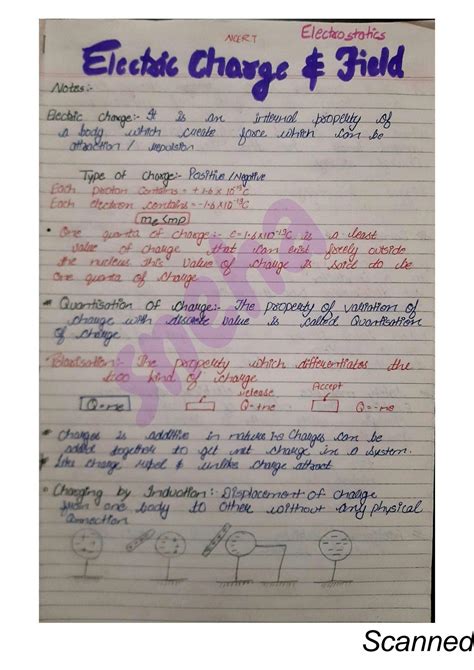 NCERT
Electrostatics
Electric Charge & Field
Notes:-
Electric charge:- It is an internal property of
a body which create force which can be
attraction / repulsion
Type of charge:- Positive / Negative
Each proton contains = +1.6 x 10⁻¹⁹C
Each electron contains = -1.6 x 10⁻¹⁹C
me < mp
• One quanta of charge:- e = 1.6 x 10⁻¹⁹C is a least
value of charge that can exist freely outside
the nucleus this value of charge is said to be
one quanta of charge
• Quantisation of charge:- The property of variation of
charge with discrete value is called Quantisation
of charge
The property which differentiates the
two kind of charge
Q = ne
release
Q = +ne
Accept
Q = -ne
• Charges is additive in nature i-e Charges can be
added together to get net charge in a system.
• Like charge repel & unlike charge attract
• Charging by Induction:- Displacement of charge
from one body to other without any physical
connection
Scanned